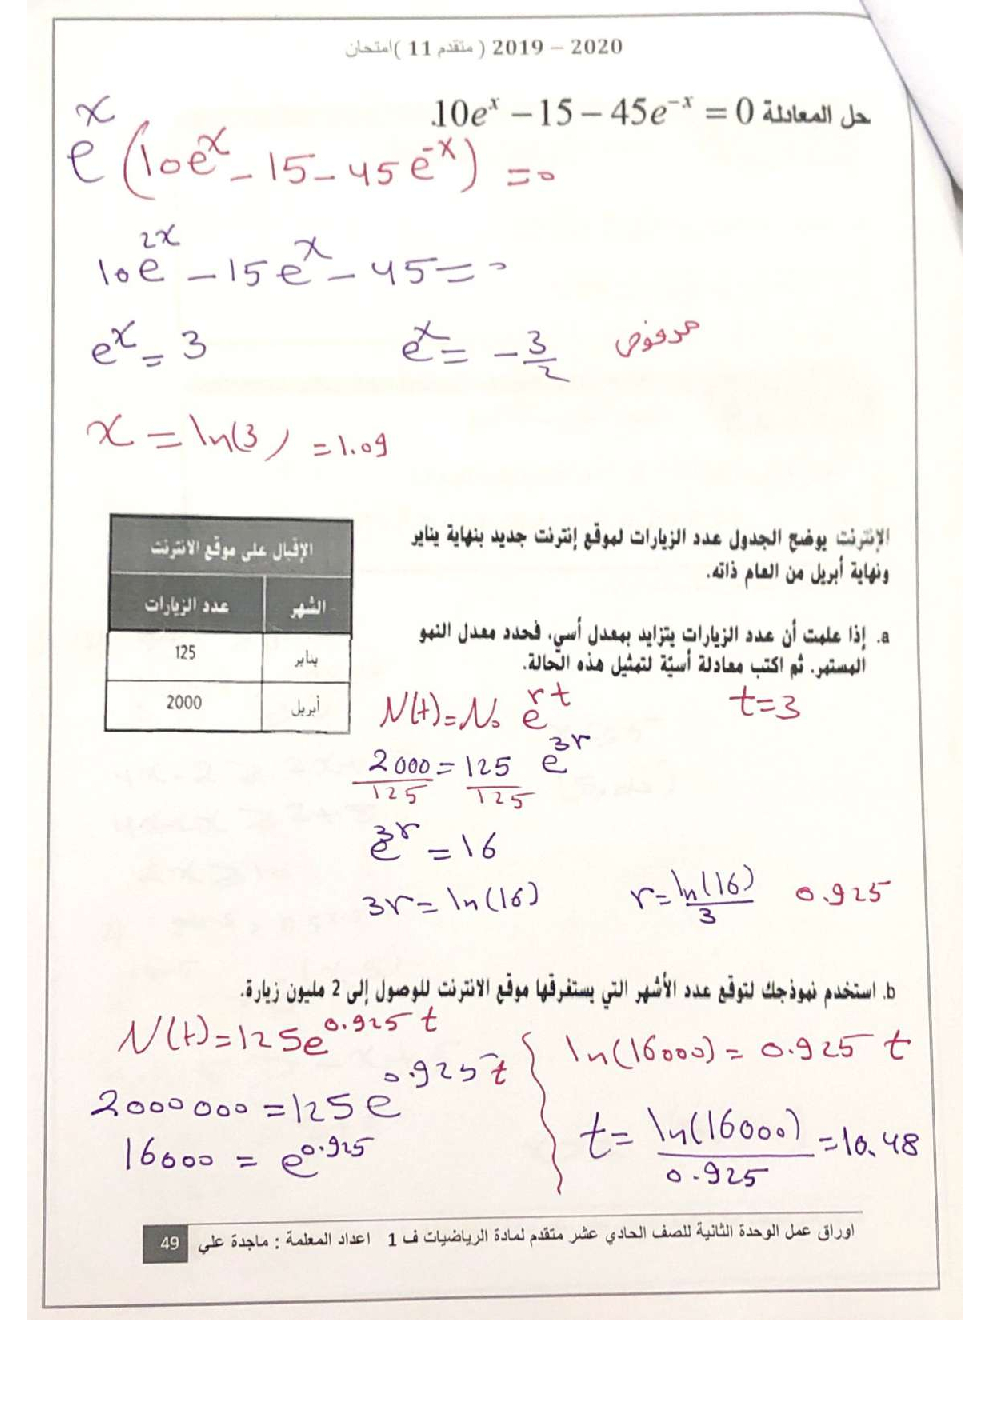 امتحان( متقدم 11 ) 2019 – 2020
حل المعادلة 10eˣ – 15 – 45e⁻ˣ = 0.
eˣ (10eˣ – 15 – 45e⁻ˣ) = 0
10e²ˣ – 15eˣ – 45 = 0
eˣ = 3    eˣ = -3/2    مرفوض
x = ln(3) = 1.09
الإنترنت يوضح الجدول عدد الزيارات لموقع إنترنت جديد بنهاية يناير
ونهاية أبريل من العام ذاته.
الإقبال على موقع الانترنت
الشهر    عدد الزيارات
يناير    125
أبريل    2000
a. إذا علمت أن عدد الزيارات يتزايد بمعدل أسي، فحدد معدل النمو
المستمر. ثم اكتب معادلة أسيّة لتمثيل هذه الحالة.
N(t) = N₀ e^rt    t=3
2000/125 = 125/125 e^3r
e^3r = 16
3r = ln(16)    r = ln(16)/3    0.925
b. استخدم نموذجك لتوقع عدد الأشهر التي يستغرقها موقع الانترنت للوصول إلى 2 مليون زيارة.
N(t) = 125e^0.925 t
2000 000 = 125 e^0.925 t
16000 = e^0.925
ln(16000) = 0.925 t
t = ln(16000)/0.925 = 10.48
اوراق عمل الوحدة الثانية للصف الحادي عشر متقدم لمادة الرياضيات ف 1 اعداد المعلمة : ماجدة علي 49